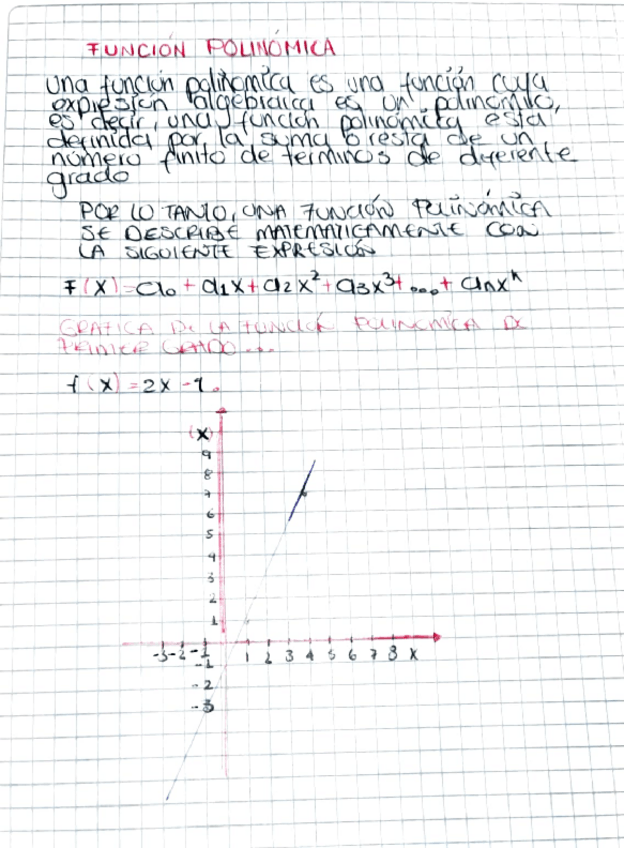 FUNCIÓN POLINÓMICA
Una función polinomica es una función cuya
expresión algebraica es un polinomio,
es decir, una función polinómica esta
definida por la suma o resta de un
número finito de terminos de diferente
grado
POR LO TANTO, UNA FUNCIÓN POLINÓMICA
SE DESCRIBE MATEMATICAMENTE CON
LA SIGUIENTE EXPRESIÓN
F(X)=a₀+a₁x+a₂x²+a₃x³+....+aₙxⁿ
GRAFICA DE LA FUNCIÓN POLINOMICA DE
PRIMER GRADO...
f(x)=2x-1.
(X)
9
8
7
6
5
4
3
2
1
-3 -2 -1 1 2 3 4 5 6 7 8 X
-1
-2
-3